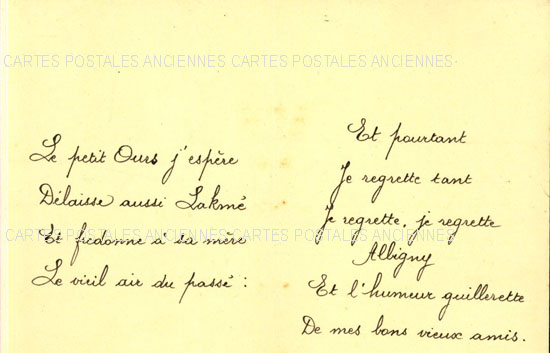 CARTES POSTALES ANCIENNES CARTES POSTALES ANCIENNES
Le petit Ours j'espère
Délaisse aussi Lakmé
Et fredonne à sa mère
Le vieil air du passé :
Et pourtant
Je regrette tant
Je regrette, je regrette
Albigny
Et l'humeur guillerette
De mes bons vieux amis.
CARTES POSTALES ANCIENNES CARTES POSTALES ANCIENNES